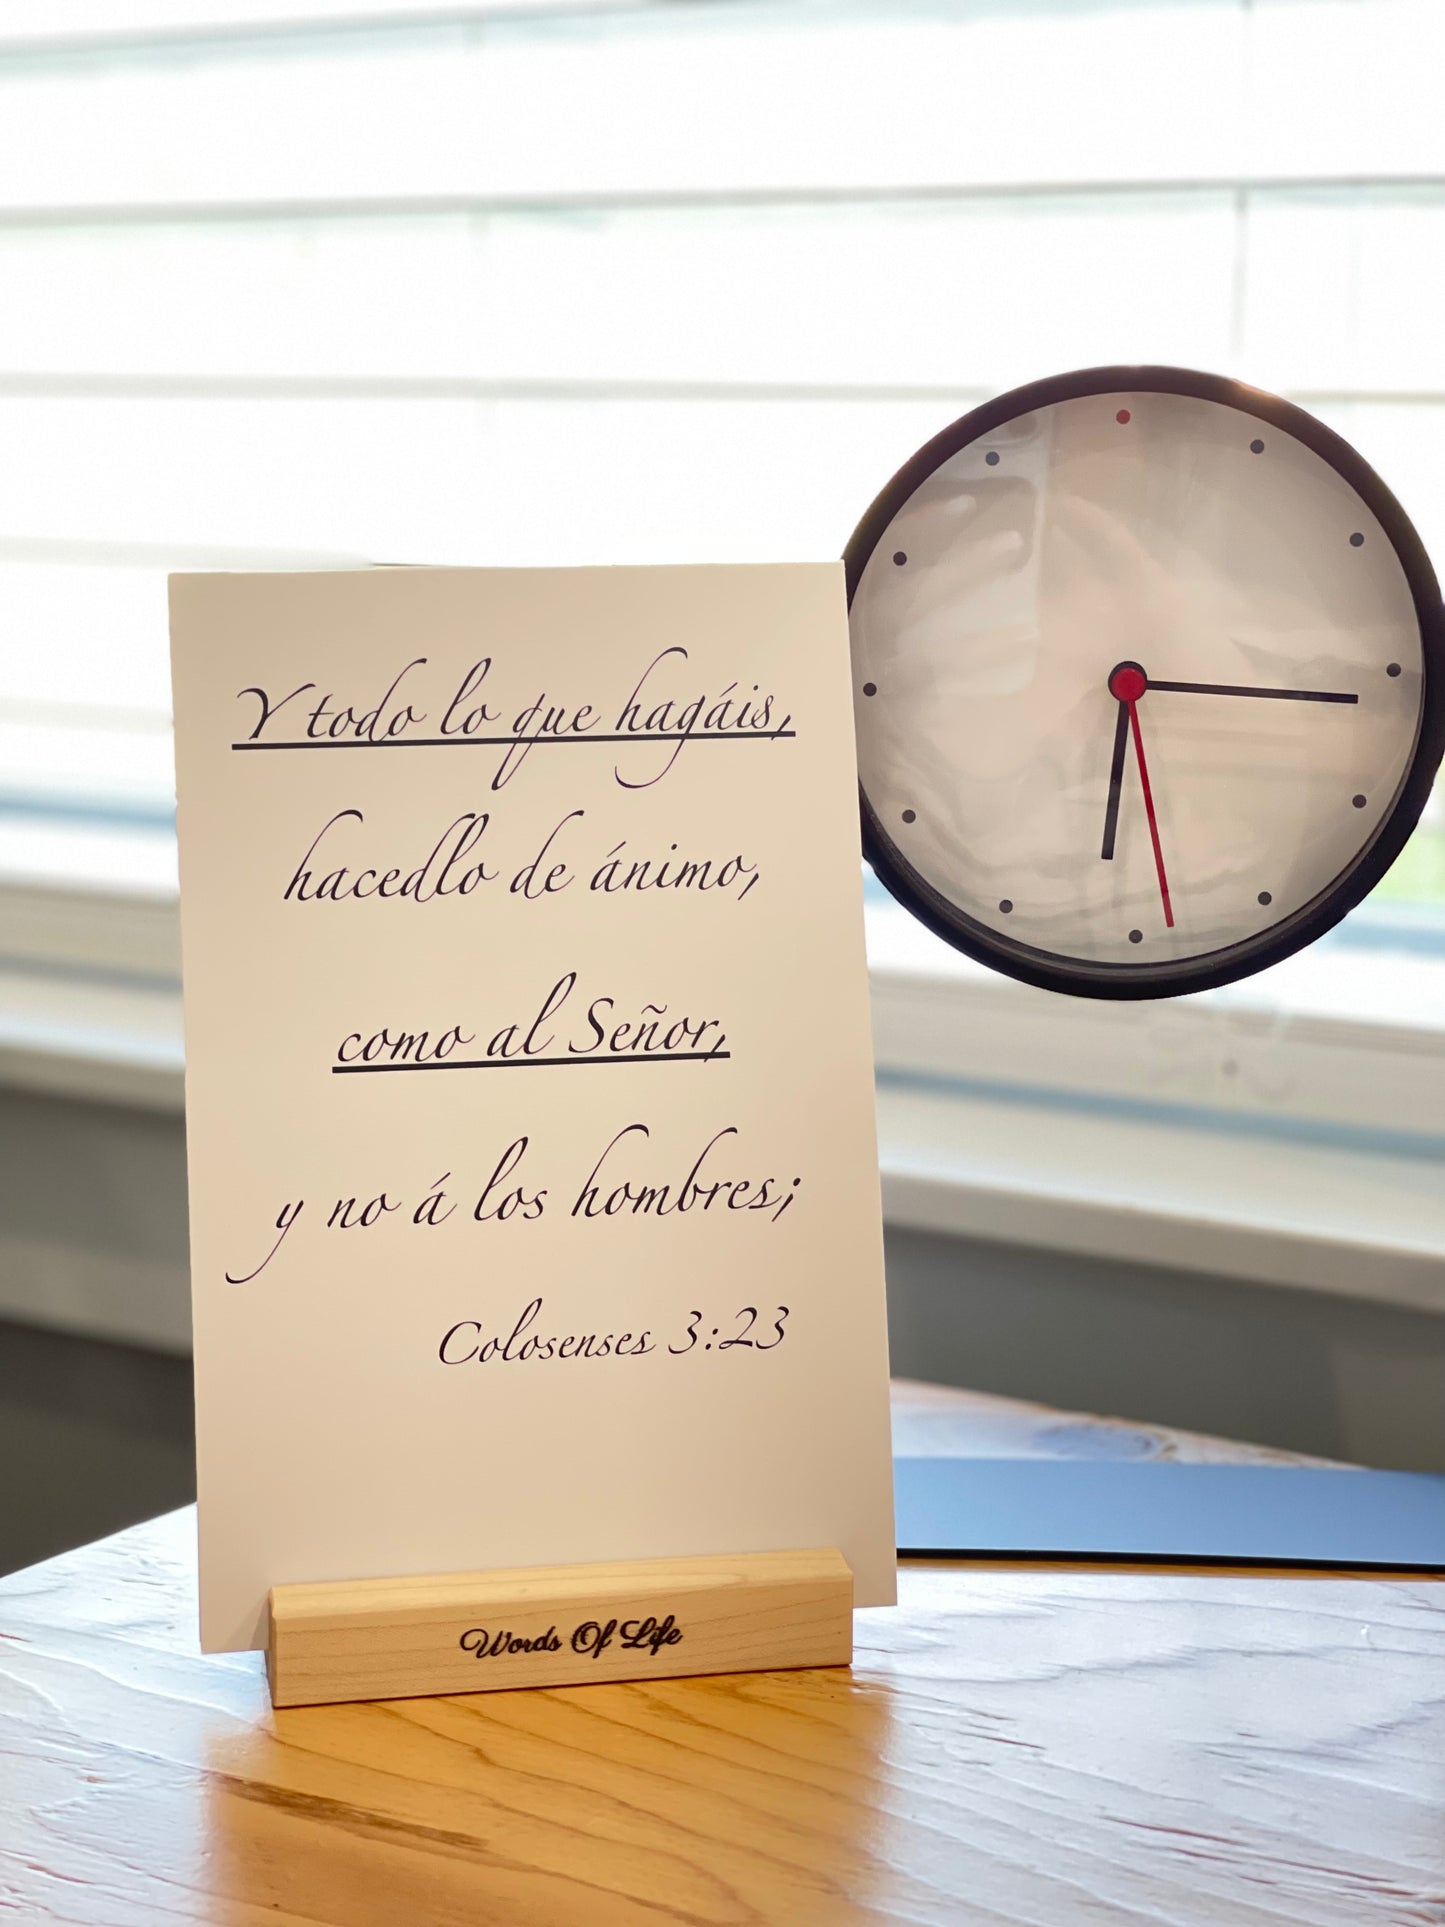 Y todo lo que hagáis,
hacedlo de ánimo,
como al Señor,
y no á los hombres;
Colosenses 3:23
Words Of Life